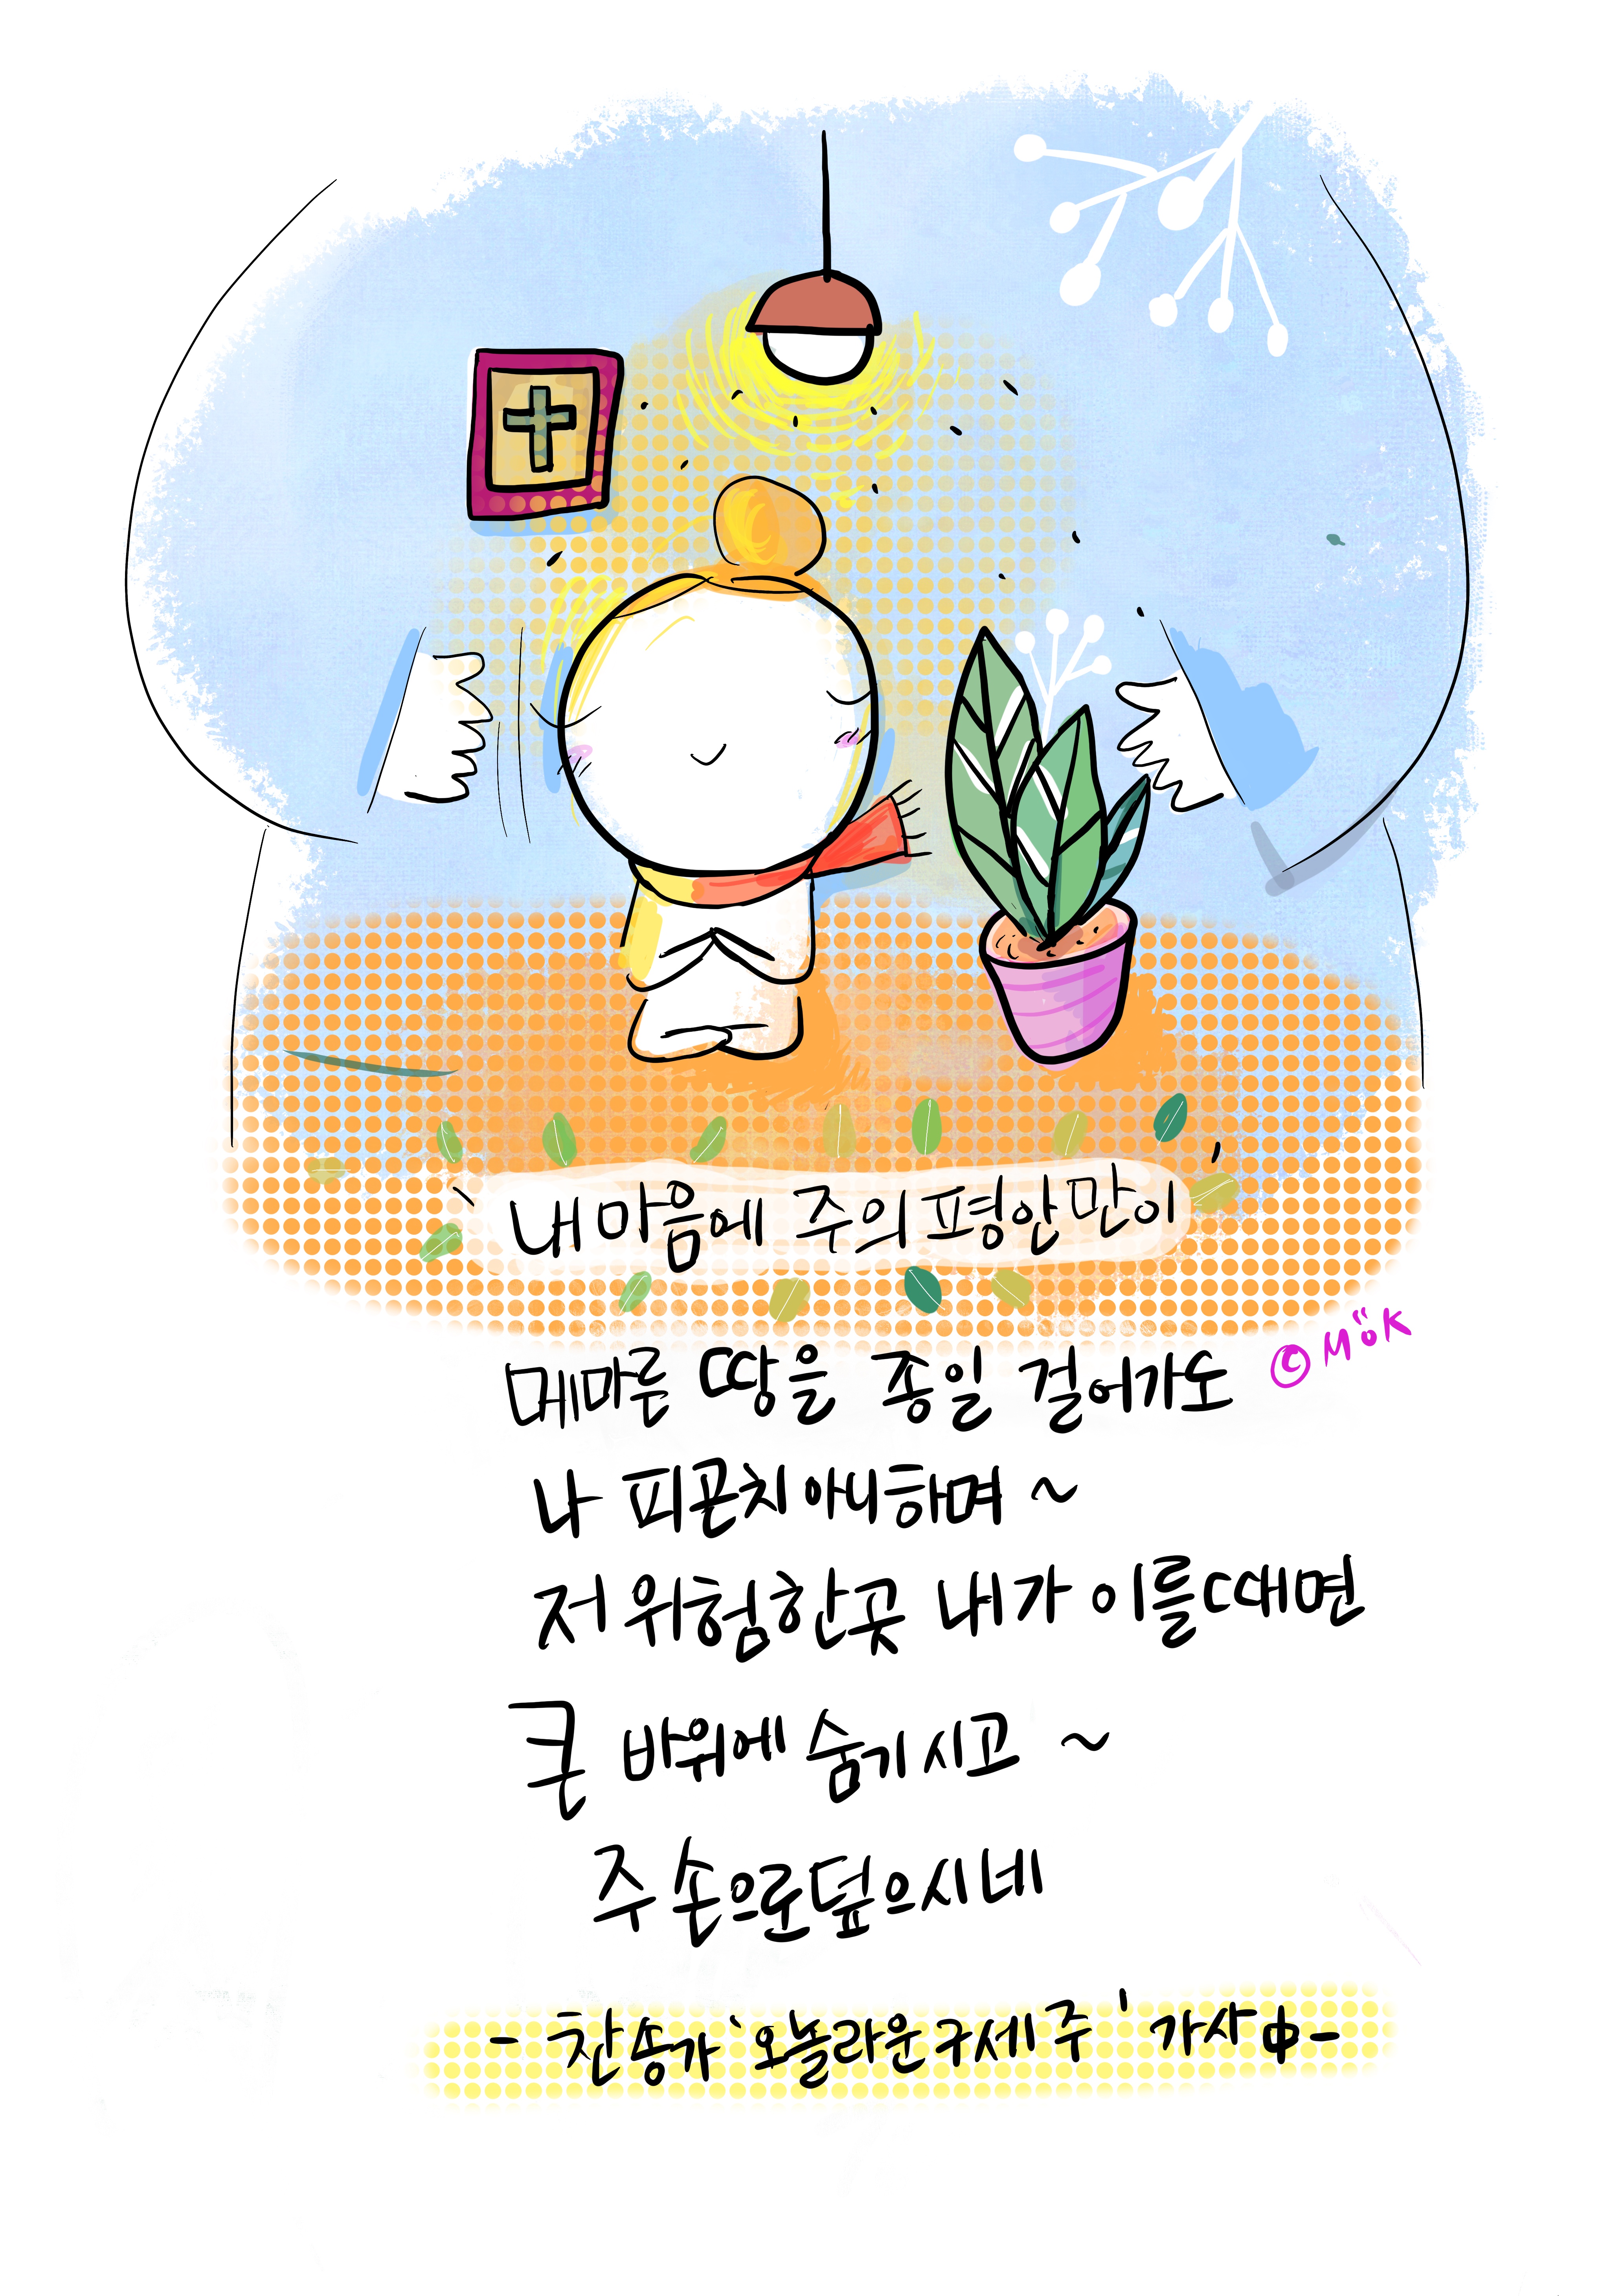 내 마음에 주의 평안만이
메마른 땅을 종일 걸어가도
©MöK
나 피곤치 아니하며 ~
저 위험한곳 내가 이를때면
큰 바위에 숨기시고 ~
주 손으로 덮으시네
- 찬송가 '오 놀라운 구세주' 가사 中-